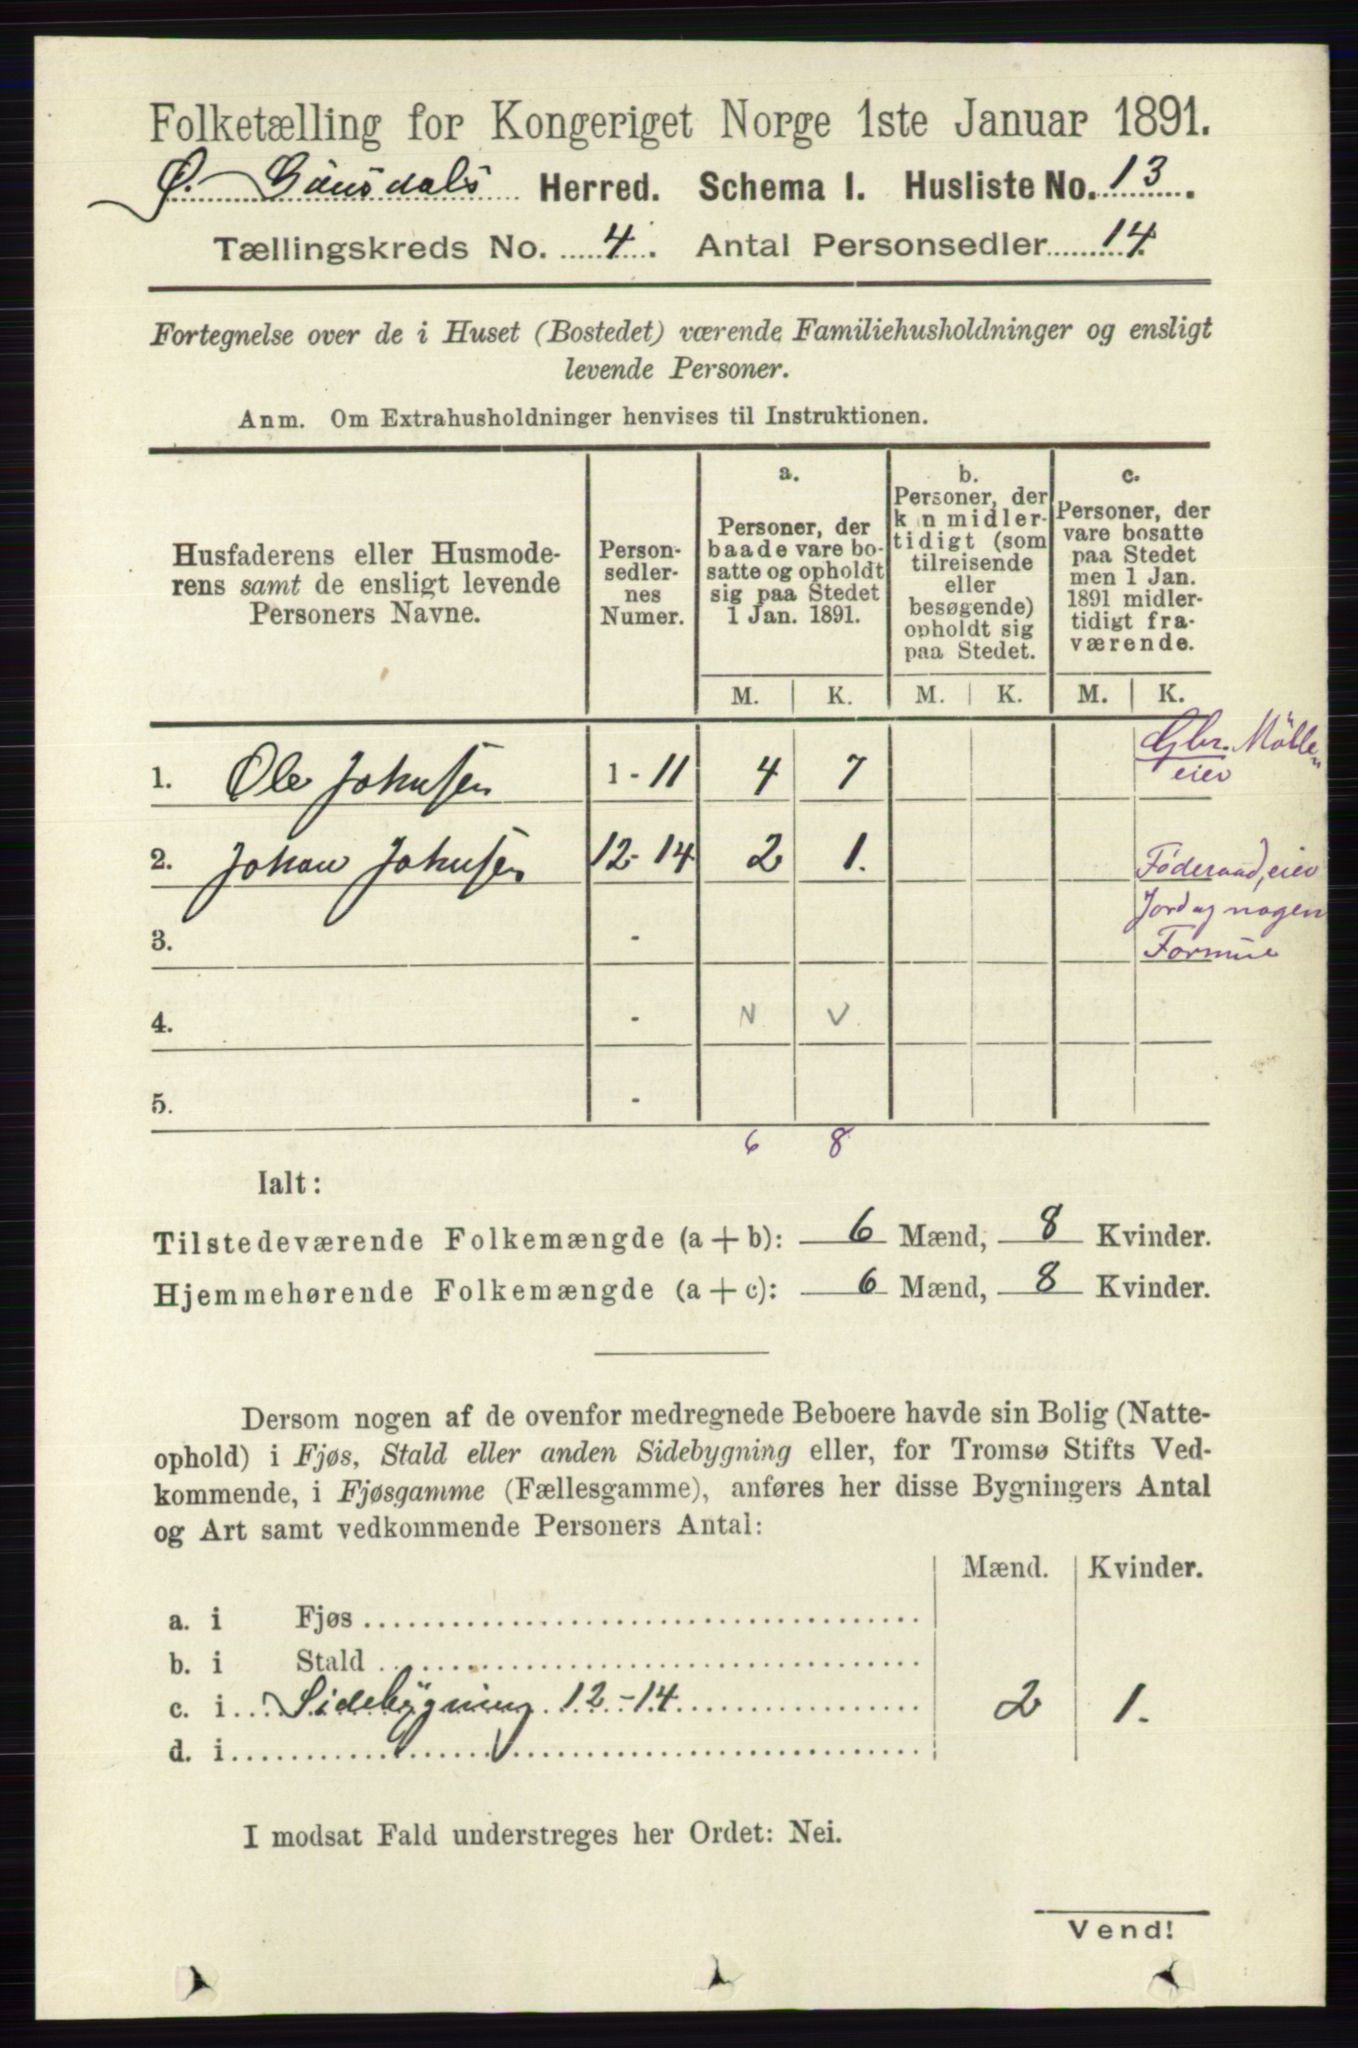 Folketælling for Kongeriget Norge 1ste Januar 1891.
Ø. Gausdals Herred. Schema I. Husliste No. 13.
Tællingskreds No. 4. Antal Personsedler 14.
Fortegnelse over de i Huset (Bostedet) værende Familiehusholdninger og ensligt
levende Personer.
Anm. Om Extrahusholdninger henvises til Instruktionen.
Husfaderens eller Husmode-
rens samt de ensligt levende
Personers Navne.
Person-
sedler-
nes
Numer.
a.
Personer, der
baade vare bo-
satte og opholdt
sig paa Stedet
1 Jan. 1891.
b.
Personer, der
kun midler-
tidigt (som
tilreisende
eller
besøgende)
opholdt sig
paa Stedet.
c.
Personer, der
vare bosatte
paa Stedet
men 1 Jan.
1891 midler-
tidigt fra-
værende.
M. K. M. K. M. K.
1. Ole Johnsen 1 - 11 4 7
Gbr. Mölle
eier
2. Johan Johnsen 12 - 14 2 1.
Föderaad, eier
Jord og nogen
Formue
3. -
4. - N V
5. -
6 8
Ialt:
Tilstedeværende Folkemængde (a + b): 6 Mænd, 8 Kvinder.
Hjemmehørende Folkemængde (a + c): 6 Mænd, 8 Kvinder.
Dersom nogen af de ovenfor medregnede Beboere havde sin Bolig (Natte-
ophold) i Fjøs, Stald eller anden Sidebygning eller, for Tromsø Stifts Ved-
kommende, i Fjøsgamme (Fællesgamme), anføres her disse Bygningers Antal
og Art samt vedkommende Personers Antal:
Mænd. Kvinder.
a. i Fjøs
b. i Stald
c. i Sidebygning 12-14 2 1.
d. i
I modsat Fald understreges her Ordet: Nei.
Vend!